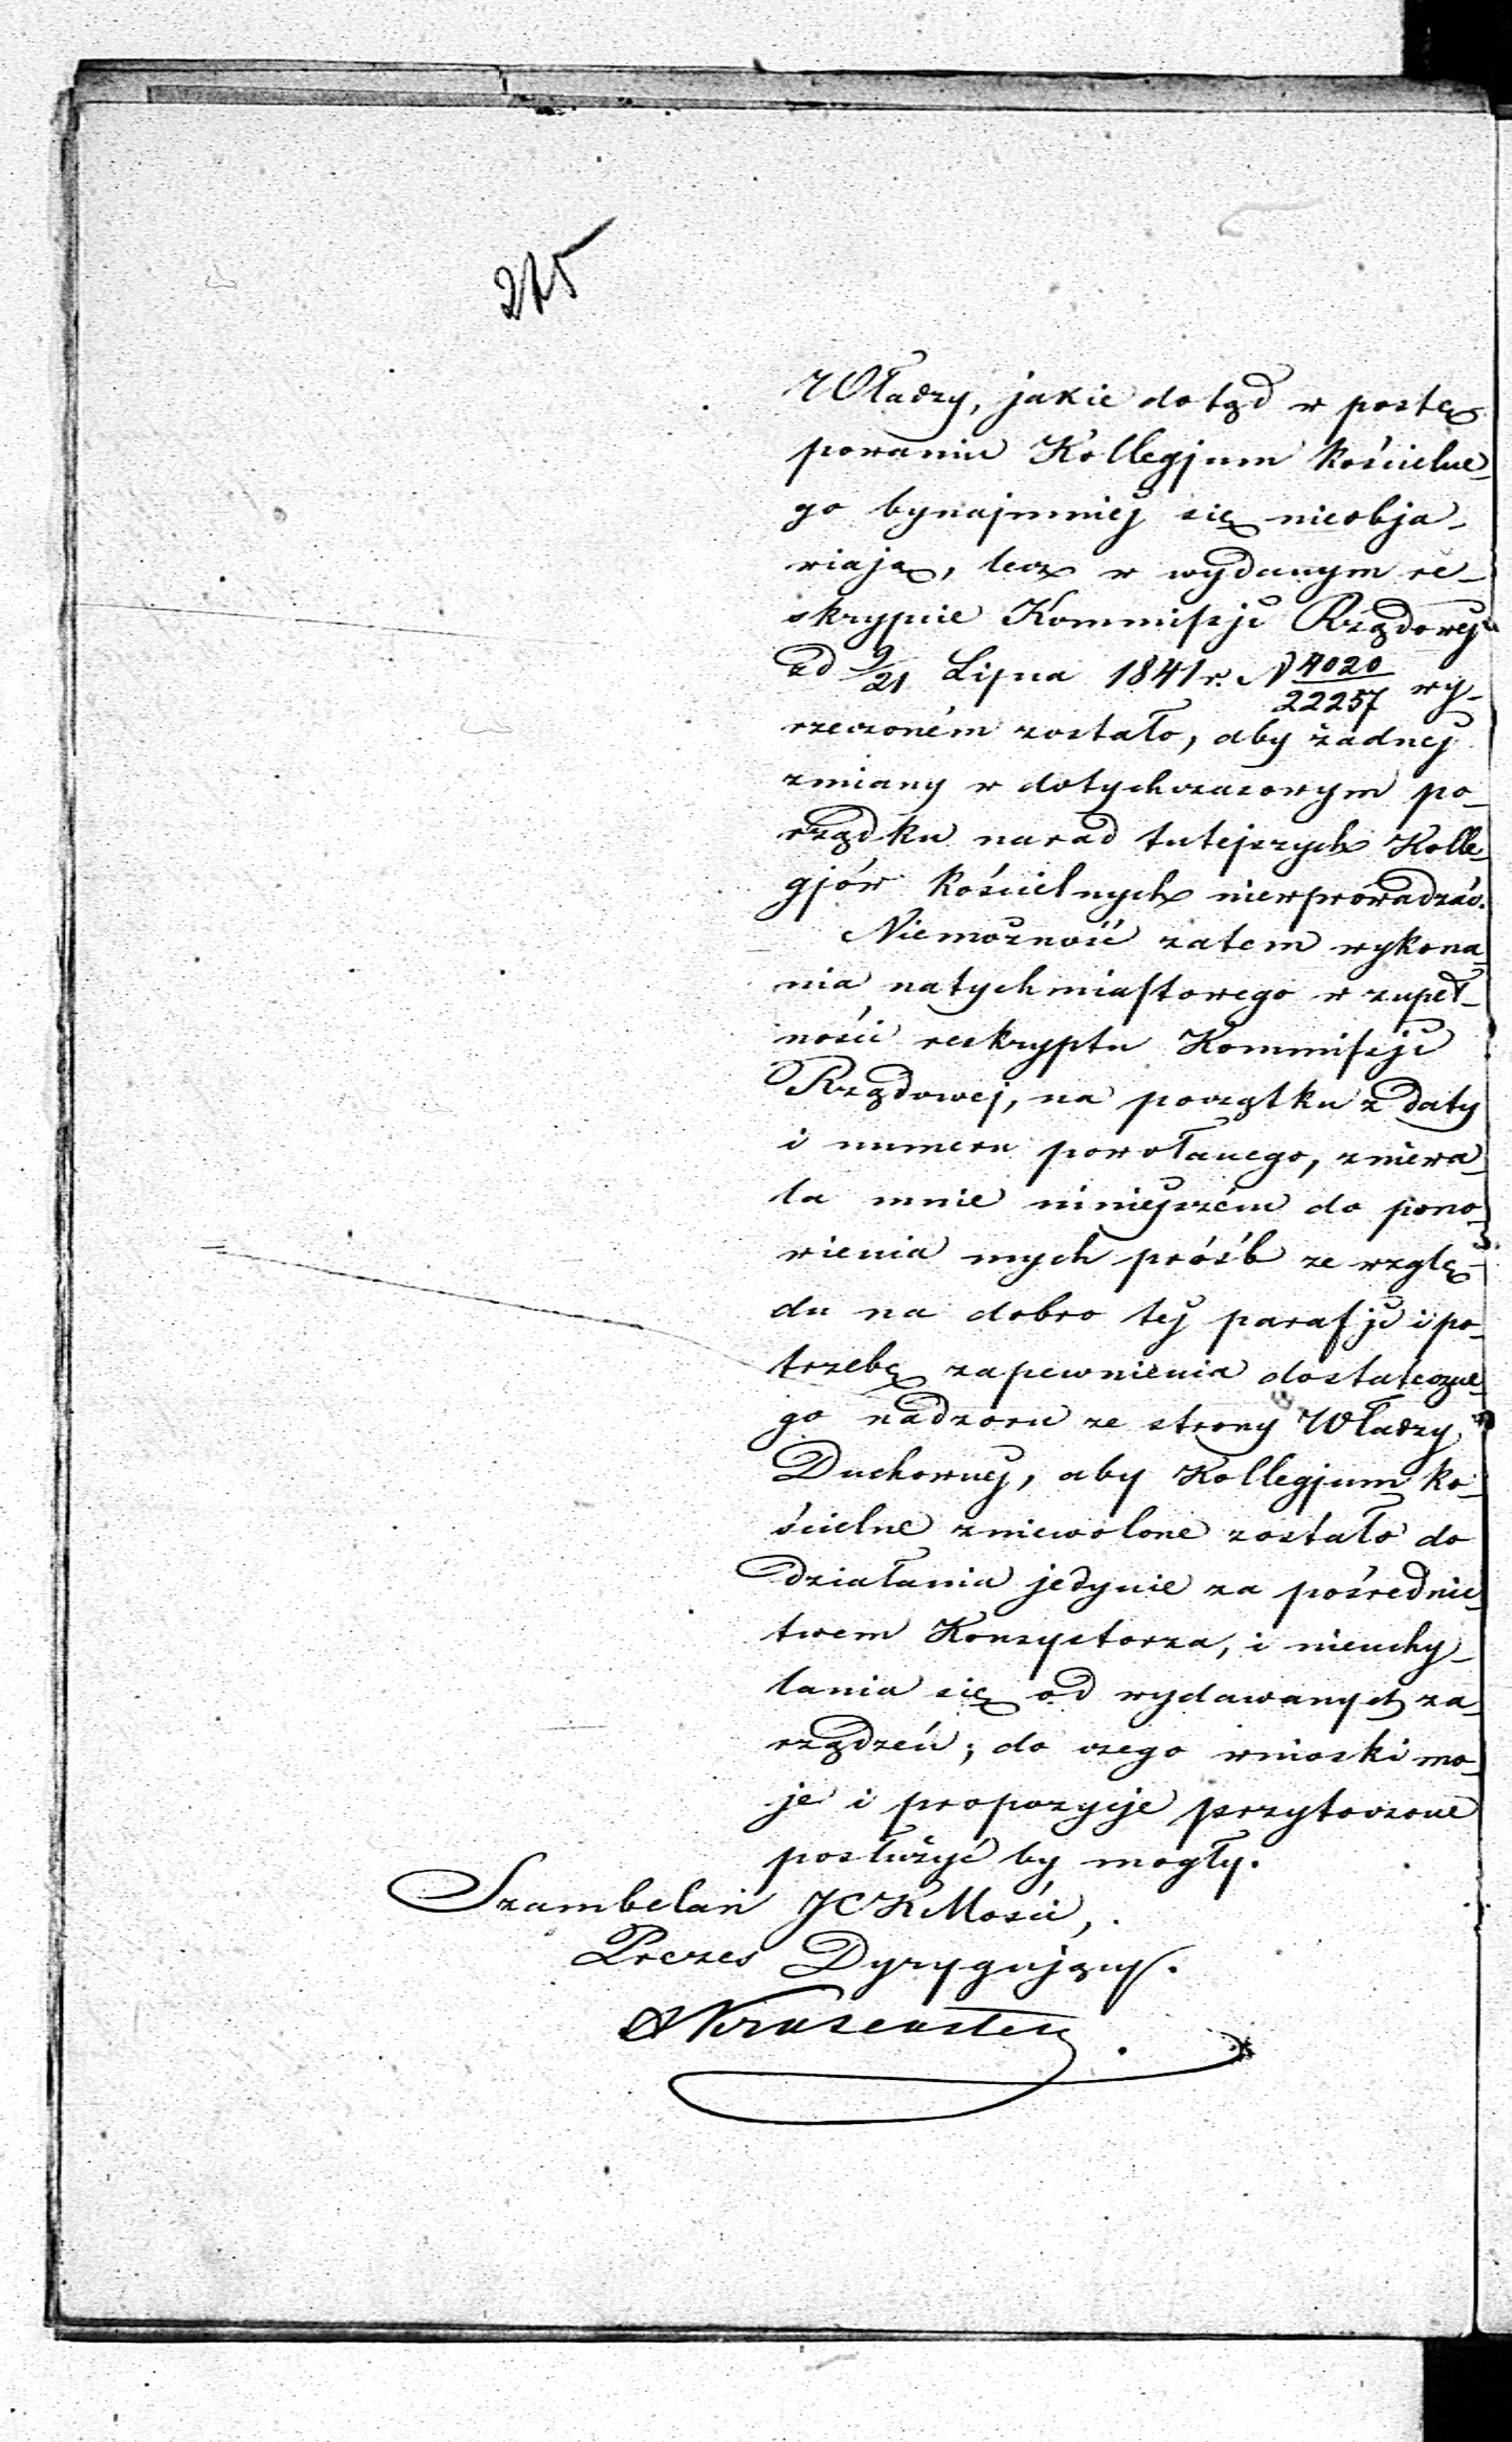 215
Władzy, jakie dotąd w postę-
powaniu Kollegjum Kościelne-
go bynajmniej się nieobja-
wiają, lecz w wydanym re-
skrypcie Kommissji Rządowej
z d 9/21 Lipca 1841 r. N 4020/22257 wy-
rzeczoném zostało, aby żadnej
zmiany w dotychczasowym po-
rządku narad tutejszych Kolle-
gjów Kościelnych niewprowadzać.
Niemożność zatem wykona-
nia natychmiastowego w zupeł-
ności reskryptu Kommissji
Rządowej, na początku z daty
i numeru powołanego, zniewa-
la mnie niniejszém do pono-
wienia mych próśb ze wzglę-
du na dobro tej parafji i po-
trzebę zapewnienia dostateczne-
go nadzoru ze strony Władzy
Duchownej, aby Kollegjum ko-
ścielne zniewolone zostało do
działania jedynie za pośrednic-
twem Konsystorza, i nieuchy-
lania się od wydawanych za-
rządzeń; do czego wnioski mo-
je i propozycje przytoczone
posłużyć by mogły.
Szambelan JCKMości,
Prezes Dyrygujący.
AKrusenstern